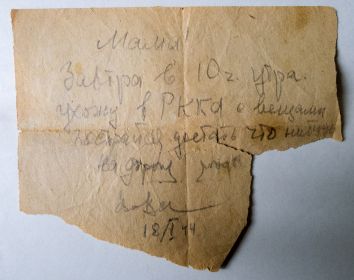 Мама!
Завтра в 10 ч. утра.
ухожу в РККА с вещами
постарайся достать что нибудь
на дорогу
18/I 44